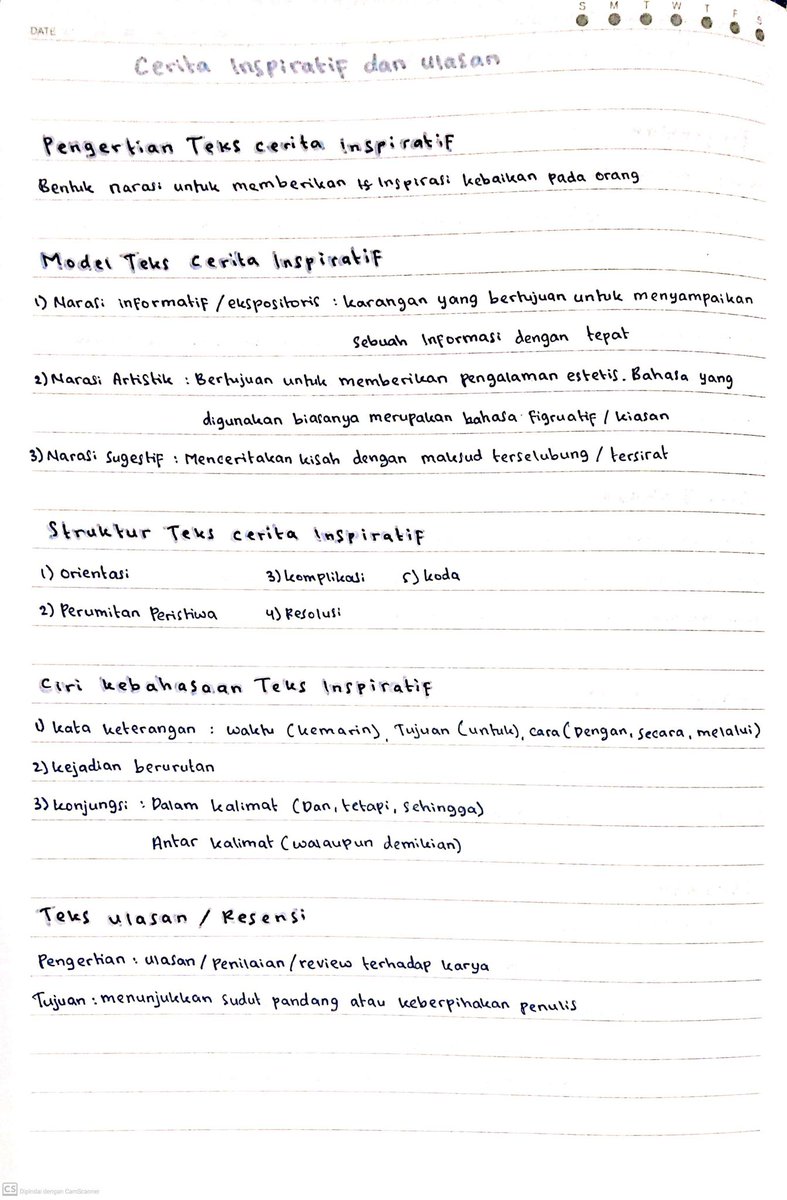 S M T W T F S
DATE
Cerita Inspiratif dan ulasan
Pengertian Teks cerita inspiratif
Bentuk narasi untuk memberikan Inspirasi kebaikan pada orang
Model Teks cerita Inspiratif
1) Narasi informatif / ekspositoris : karangan yang bertujuan untuk menyampaikan
sebuah Informasi dengan tepat
2) Narasi Artistik : Bertujuan untuk memberikan pengalaman estetis. Bahasa yang
digunakan biasanya merupakan bahasa figruatif / kiasan
3) Narasi sugestif : Menceritakan kisah dengan maksud terselubung / tersirat
Struktur Teks cerita Inspiratif
1) Orientasi 3) komplikasi 5) koda
2) Perumitan Peristiwa 4) Resolusi
Ciri kebahasaan Teks Inspiratif
1) kata keterangan : waktu (kemarin), Tujuan (untuk), cara (Dengan, secara, melalui)
2) kejadian berurutan
3) konjungsi : Dalam kalimat (Dan, tetapi, sehingga)
Antar kalimat (walaupun demikian)
Teks ulasan / Resensi
Pengertian : ulasan / penilaian / review terhadap karya
Tujuan : menunjukkan sudut pandang atau keberpihakan penulis
CS Dipindai dengan CamScanner